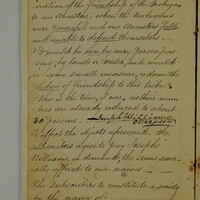 ration of the friendship of the Mohegans
to our Ancestors, when the Mohegans
were powerful and our Ancestors feeble
and unable to defend themselves
It would be seen by every person pass
sing, by land or water, and would
in some small measure, redeem the
of friendship to this tribe
Now is the time, if ever, as their num
bers are already reduced to about
20 persons.
To effect the objects aforesaid, the
subscribers agree to pay Joseph
Williams, on demand, the sums seve
rally affixed to our names
The subscribers to constitute a society
by the name of